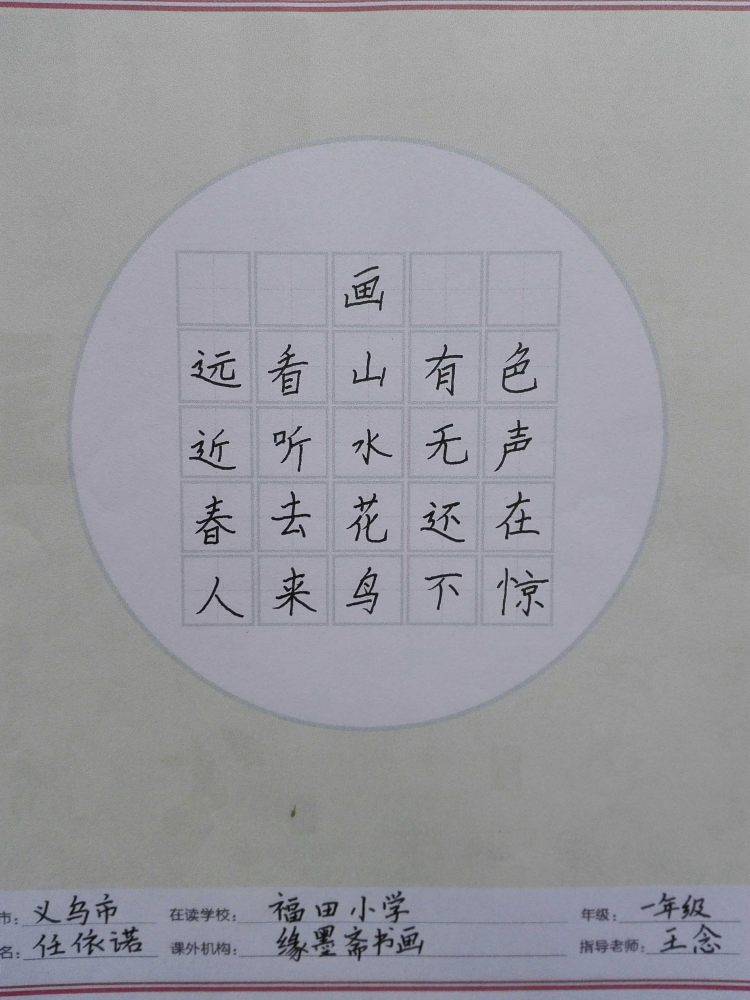 画
远看山有色
近听水无声
春去花还在
人来鸟不惊
市: 义乌市 在读学校: 福田小学 年级: 一年级
名: 任依诺 课外机构: 缘墨斋书画 指导老师: 王念